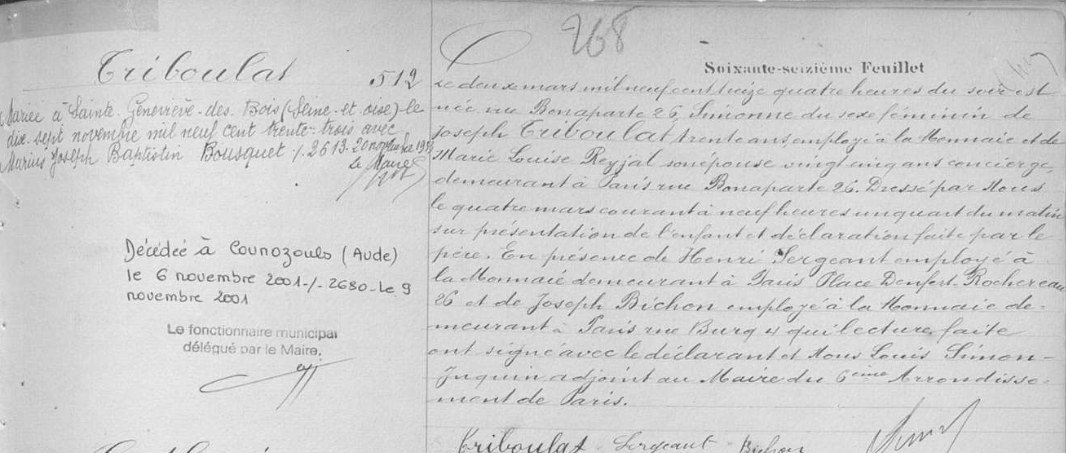 268
Soixante-seizième Feuillet
Triboulat
512
Mariée à Sainte Geneviève-des-Bois (Seine-et-oise)-le
dix-sept novembre mil neuf cent trente-trois avec
Marius Joseph Baptistin Bousquet /. 2613. 20 novembre
Le Maire
Décédée à Counozouls (Aude)
le 6 novembre 2001-/-2680-Le 9
novembre 2001
Le fonctionnaire municipal
délégué par le Maire.
Le deux mars mil neuf cent treize quatre heures du soir est
née rue Bonaparte 26, Simonne du sexe féminin de
Joseph Triboulat trente ans employé à la Monnaie et de
Marie Louise Reyjal son épouse vingt cinq ans concierge,
demeurant à Paris rue Bonaparte 26. Dressé par Nous
le quatre mars courant à neuf heures un quart du matin
sur présentation de l'enfant et déclaration faite par le
père. En présence de Henri Sergeant employé à
la Monnaie demeurant à Paris Place Denfert-Rochereau
26 et de Joseph Bichon employé à la Monnaie de-
meurant à Paris rue Burq 4 qui lecture faite
ont signé avec le déclarant et Nous Louis Simon-
Juquin adjoint au Maire du 6ème Arrondisse-
ment de Paris.
Triboulat Sergeant Bichon